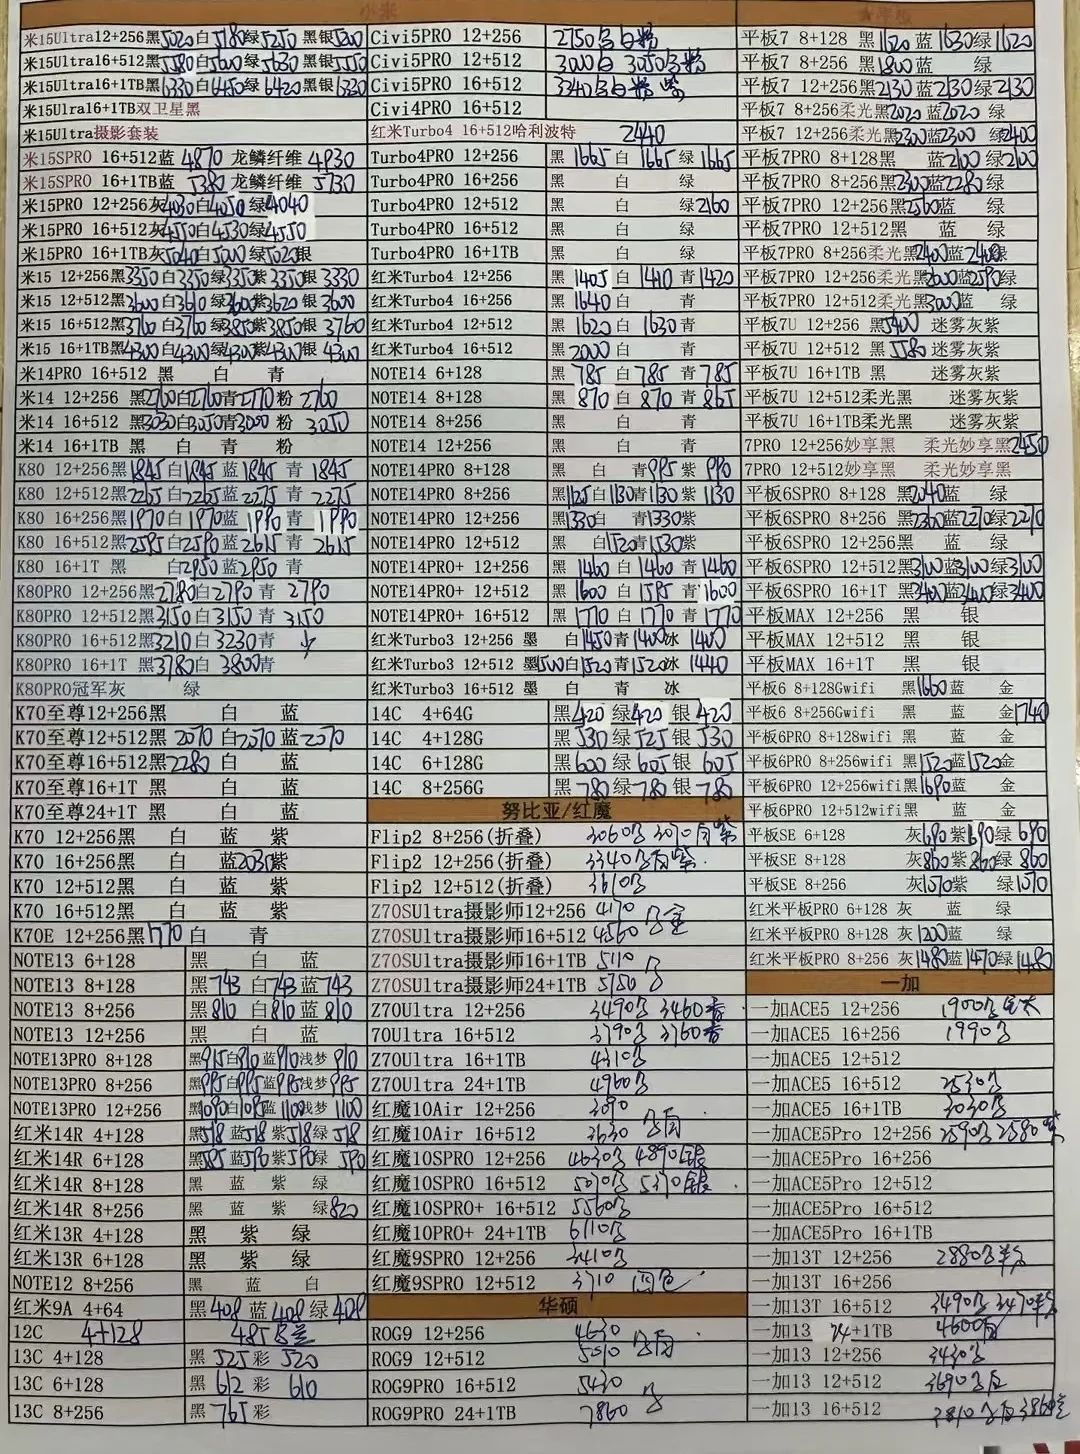 小米
米15Ultra12+256黑5020白5180绿5250 黑银5200
米15Ultra16+512黑5580白5600绿5630 黑银5550
米15Ultra16+1TB黑6330白6450绿6420黑银6330
米15Ultra16+1TB双卫星黑
米15Ultra摄影套装
米15SPRO 16+512蓝 4870 龙鳞纤维 4930
米15SPRO 16+1TB蓝 5380 龙鳞纤维 5730
米15PRO 12+256灰4030白4050绿4040
米15PRO 12+512灰4550白4530绿4550
米15PRO 16+1TB灰5040白5000绿5020银
米15 12+256黑3350白3350绿3350紫3350银 3330
米15 12+512黑3600白3610绿3600紫3620银 3600
米15 16+512黑3760白3760绿3850紫3850银 3760
米15 16+1TB黑4300白4300绿4300紫4300银 4300
米14PRO 16+512 黑 白 青
米14 12+256 黑2760白2760青2770粉 2760
米14 16+512 黑3030白3050青3000 粉 3050
米14 16+1TB 黑 白 青 粉
K80 12+256黑1845白1845蓝1845 青 1845
K80 12+512黑2265白2265蓝2275 青 2275
K80 16+256黑1970白1970蓝1990 青 1990
K80 16+512黑2595白2590蓝2615 青 2615
K80 16+1T 黑 白2950蓝2950 青
K80PRO 12+256黑2780白2790 青 2790
K80PRO 12+512黑3150白3150 青 3150
K80PRO 16+512黑3210白3230青
K80PRO 16+1T 黑3780白 3800青
K80PRO冠军灰 绿
K70至尊12+256黑 白 蓝
K70至尊12+512黑 2070 白2070蓝2070
K70至尊16+512黑2280 白 蓝
K70至尊16+1T 黑 白 蓝
K70至尊24+1T 黑 白 蓝
K70 12+256黑 白 蓝 紫
K70 16+256黑 白 蓝2030紫
K70 12+512黑 白 蓝 紫
K70 16+512黑 白 蓝 紫
K70E 12+256黑1770 白 青
NOTE13 6+128 黑 白 蓝
NOTE13 8+128 黑743 白743蓝743
NOTE13 8+256 黑810 白810蓝810
NOTE13 12+256 黑 白 蓝
NOTE13PRO 8+128 黑915白910蓝910浅梦910
NOTE13PRO 8+256 黑995白995蓝995浅梦995
NOTE13PRO 12+256 黑1090白1095蓝1100浅梦1100
红米14R 4+128 黑518 蓝518紫518绿518
红米14R 6+128 黑585蓝590紫590绿 590
红米14R 8+128 黑 蓝 紫 绿
红米14R 8+256 黑 蓝 紫 绿820
红米13R 4+128 黑 紫 绿
红米13R 6+128 黑 紫 绿
NOTE12 8+256 黑 蓝 白
红米9A 4+64 黑408 蓝408绿408
12C 4+128 485
13C 4+128 黑 525 彩 520
13C 6+128 黑 612 彩 610
13C 8+256 黑 765彩
Civi5PRO 12+256 2750白粉
Civi5PRO 12+512 3000白 3050粉
Civi5PRO 16+512 3340白粉 紫
Civi4PRO 16+512
红米Turbo4 16+512哈利波特 2440
Turbo4PRO 12+256 黑 1665 白 1665 绿1665
Turbo4PRO 16+256 黑 白 绿
Turbo4PRO 12+512 黑 白 绿2160
Turbo4PRO 16+512 黑 白 绿
Turbo4PRO 16+1TB 黑 白 绿
红米Turbo4 12+256 黑 1405 白 1410 青1420
红米Turbo4 16+256 黑1640白 青
红米Turbo4 12+512 黑 1620 白 1630 青
红米Turbo4 16+512 黑 2000 白 青
NOTE14 6+128 黑 785 白 785 青 785
NOTE14 8+128 黑 870 白 870 青 865
NOTE14 8+256 黑 白 青
NOTE14 12+256 黑 白 青
NOTE14PRO 8+128 黑 白 青995紫 990
NOTE14PRO 8+256 黑1125白1130青1130紫 1130
NOTE14PRO 12+256 黑1330白 青1330紫
NOTE14PRO 12+512 黑 白1520青1530紫
NOTE14PRO+ 12+256 黑1460 白 1460 青1460
NOTE14PRO+ 12+512 黑1600 白 1595 青1600
NOTE14PRO+ 16+512 黑1770 白 1770 青1770
红米Turbo3 12+256 墨 白1450青1400冰 1400
红米Turbo3 12+512 墨1500白1520青1520冰 1440
红米Turbo3 16+512 墨 白 青 冰
14C 4+64G 黑420 绿420 银 420
14C 4+128G 黑530 绿525 银 530
14C 6+128G 黑600 绿605 银 605
14C 8+256G 黑780 绿780 银 785
努比亚/红魔
Flip2 8+256(折叠) 3060 3070 紫
Flip2 12+256(折叠) 3340 紫
Flip2 12+512(折叠) 3610
Z70SUltra摄影师12+256 4170
Z70SUltra摄影师16+512 4560
Z70SUltra摄影师16+1TB 5110
Z70SUltra摄影师24+1TB 5750
Z70Ultra 12+256 3490 3460
70Ultra 16+512 3790 3760
Z70Ultra 16+1TB 4310
Z70Ultra 24+1TB 4960
红魔10Air 12+256 3090
红魔10Air 16+512 3630
红魔10SPRO 12+256 4630 4890银
红魔10SPRO 16+512 5070 5370银
红魔10SPRO+ 16+512 5560
红魔10PRO+ 24+1TB 6110
红魔9SPRO 12+256 3410
红魔9SPRO 12+512 3710 四色
华硕
ROG9 12+256 4630
ROG9 12+512 5010
ROG9PRO 16+512 5430
ROG9PRO 24+1TB 7860
平板7 8+128 黑 1620 蓝 1630绿 1620
平板7 8+256 黑1800蓝 绿
平板7 12+256黑2130 蓝2130绿2130
平板7 8+256柔光黑2020蓝2020 绿
平板7 12+256柔光黑2300蓝2300 绿2400
平板7PRO 8+128黑 蓝2100绿2100
平板7PRO 8+256黑2300蓝2280绿
平板7PRO 12+256黑2560蓝 绿
平板7PRO 12+512黑 蓝 绿
平板7PRO 8+256柔光黑2400蓝2400绿
平板7PRO 12+256柔光黑2600蓝2590绿
平板7PRO 12+512柔光黑3000蓝 绿
平板7U 12+256 黑5400 迷雾灰紫
平板7U 12+512 黑5580 迷雾灰紫
平板7U 16+1TB 黑 迷雾灰紫
平板7U 12+512柔光黑 迷雾灰紫
平板7U 16+1TB柔光黑 迷雾灰紫
7PRO 12+256妙享黑 柔光妙享黑2450
7PRO 12+512妙享黑 柔光妙享黑
平板6SPRO 8+128 黑2040蓝 绿
平板6SPRO 8+256 黑2300蓝2270绿2270
平板6SPRO 12+256黑 蓝 绿
平板6SPRO 12+512黑3100蓝3100绿3100
平板6SPRO 16+1T 黑3400蓝3400绿3400
平板MAX 12+256 黑 银
平板MAX 12+512 黑 银
平板MAX 16+1T 黑 银
平板6 8+128Gwifi 黑1660蓝 金
平板6 8+256Gwifi 黑 蓝 金1740
平板6PRO 8+128wifi 黑 蓝 金
平板6PRO 8+256wifi 黑1520蓝1520金
平板6PRO 12+256wifi黑1690蓝 金
平板6PRO 12+512wifi黑 蓝 金
平板SE 6+128 灰690紫690绿 690
平板SE 8+128 灰860紫 860绿 860
平板SE 8+256 灰1070紫 绿1070
红米平板PRO 6+128 灰 蓝 绿
红米平板PRO 8+128 灰1200蓝 绿
红米平板PRO 8+256 灰1480蓝1470绿1480
一加
一加ACE5 12+256 1900
一加ACE5 16+256 1990
一加ACE5 12+512
一加ACE5 16+512 2530
一加ACE5 16+1TB 3030
一加ACE5Pro 12+256 2590 2580紫
一加ACE5Pro 16+256
一加ACE5Pro 12+512
一加ACE5Pro 16+512
一加ACE5Pro 16+1TB
一加13T 12+256 2880
一加13T 16+256
一加13T 16+512 3490 3470
一加13 24+1TB 4600
一加13 12+256 3430
一加13 12+512 3690
一加13 16+512 3810